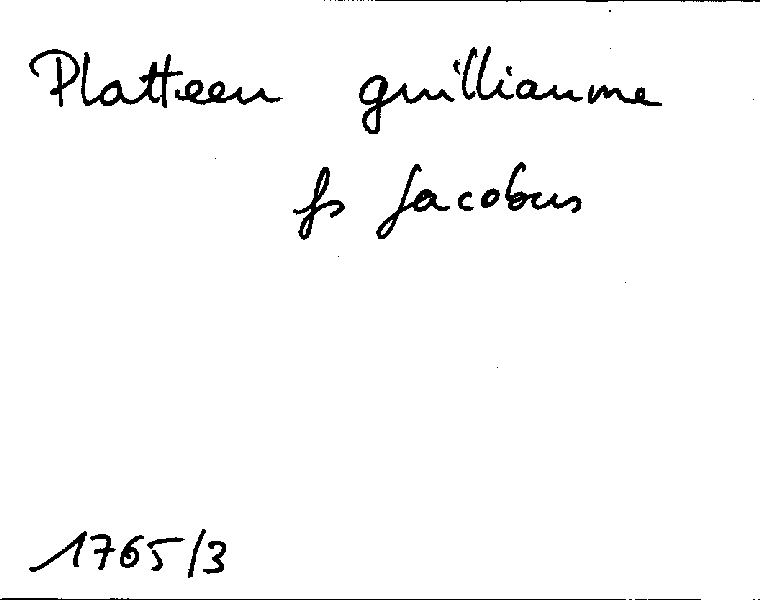 Platteeu guilliaume
fs Jacobus
1765/3